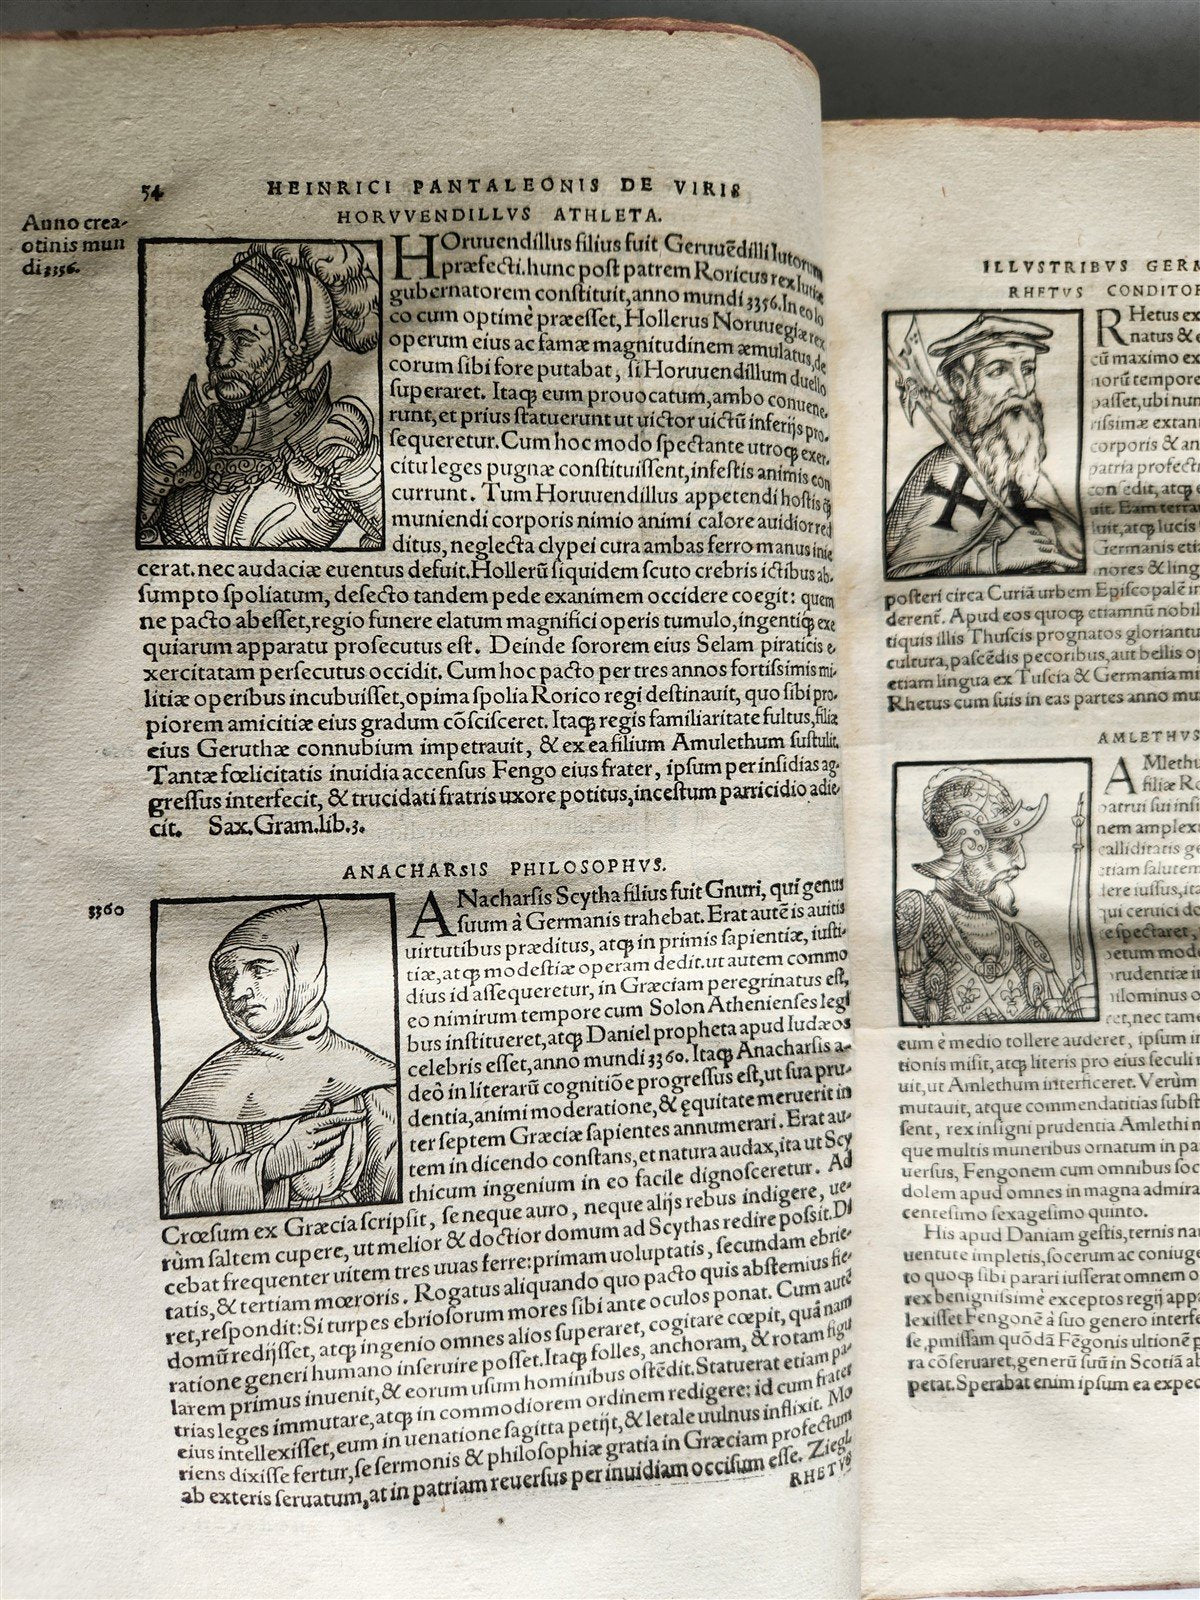 54
HEINRICI PANTALEONIS DE VIRIS
HORVVENDILLVS ATHLETA.
Anno crea-
otinis mun
di 3356.
HOruuendillus filius fuit Geruuēdilli Iutorum
præfecti. hunc post patrem Roricus rex Iutiæ
gubernatorem constituit, anno mundi 3356. In eo lo
co cum optimè præesset, Hollerus Noruuegiæ rex
operum eius ac famæ magnitudinem æmulatus, de
corum sibi fore putabat, si Horuuendillum duello
superaret. Itaq; eum prouocatum, ambo conuene-
runt, et prius statuerunt ut uictor uictū inferijs pro-
sequeretur. Cum hoc modo spectante utroq; exer-
citu leges pugnæ constituissent, infestis animis con
currunt. Tum Horuuendillus appetendi hostis q̃
muniendi corporis nimio animi calore auidior red
ditus, neglecta clypei cura ambas ferro manus inie
cerat. nec audaciæ euentus defuit. Hollerū siquidem scuto crebris ictibus ab-
sumpto spoliatum, desecto tandem pede exanimem occidere coegit: quem
ne pacto abesset, regio funere elatum magnifici operis tumulo, ingentiq; exe
quiarum apparatu prosecutus est. Deinde sororem eius Selam piraticis e
xercitatam persecutus occidit. Cum hoc pacto per tres annos fortissimis mi-
litiæ operibus incubuisset, opima spolia Rorico regi destinauit, quo sibi pro-
piorem amicitiæ eius gradum cōscisceret. Itaq; regis familiaritate fultus, filiæ
eius Geruthæ connubium impetrauit, & ex ea filium Amulethum sustulit.
Tantæ fœlicitatis inuidia accensus Fengo eius frater, ipsum per insidias ag-
gressus interfecit, & trucidati fratris uxore potitus, incestum parricidio adie-
cit. Sax. Gram. lib. 3.
ANACHARSIS PHILOSOPHVS.
3360
ANacharsis Scytha filius fuit Gnuri, qui genus
suum à Germanis trahebat. Erat autē is auitis
uirtutibus præditus, atq; in primis sapientiæ, iusti-
tiæ, atq; modestiæ operam dedit. ut autem commo
dius id assequeretur, in Græciam peregrinatus est,
eo nimirum tempore cum Solon Athenienses legi
bus institueret, atq; Daniel propheta apud Iudæos
celebris esset, anno mundi 3360. Itaq; Anacharsis a-
deô in literarū cognitiōe progressus est, ut sua pru-
dentia, animi moderatione, & ęquitate meruerit in
ter septem Græciæ sapientes annumerari. Erat au-
tem in dicendo constans, et natura audax, ita ut Scy
thicum ingenium in eo facile dignosceretur. Ad
Crœsum ex Græcia scripsit, se neque auro, neque alijs rebus indigere, ue-
rùm saltem cupere, ut melior & doctior domum ad Scythas redire possit. Di
cebat frequenter uitem tres uuas ferre: primam uoluptatis, secundam ebrie-
tatis, & tertiam mœroris. Rogatus aliquando quo pacto quis abstemius fie-
ret, respondit: Si turpes ebriosorum mores sibi ante oculos ponat. Cum autē
domū redijsset, atq; ingenio omnes alios superaret, cogitare cœpit, quâ nam
ratione generi humano inseruire posset. Itaq; folles, anchoram, & rotam figu
larem primus inuenit, & eorum usum hominibus ostēdit. Statuerat etiam pa-
trias leges immutare, atq; in commodiorem ordinem redigere: id cum frater
eius intellexisset, eum in uenatione sagitta petijt, & letale uulnus inflixit. Mo
riens dixisse fertur, se sermonis & philosophiæ gratia in Græciam profectum
ab exteris seruatum, at in patriam reuersus per inuidiam occisum esse. Ziegl.
RHETVS
ILLVSTRIBVS GERM
RHETVS CONDITO
RHetus ex
natus & e
cū maximo ex
norū tempore
passet, ubi nun
rissimæ extan
corporis & an
patria profect
con sedit, atq; e
uit. Eam terra
luit, atq; lucis
Germanis etia
mores & ling
posteri circa Curiã urbem Episcopalē in
derent. Apud eos quoq; etiamnū nobil
tiquis illis Thuscis prognatos gloriantu
cultura, pascēdis pecoribus, aut bellis op
etiam lingua ex Tuscia & Germania mi
Rhetus cum suis in eas partes anno mu
AMLETHVS
AMlethu
filiæ Ro
patrui sui insi
nem amplex
calliditatis ge
etiam salutem
dere iussus, ita
qui ceruici do
e spectaret,
petum mod
prudentiæ i
nilominus o
ret, nec tame
eum è medio tollere auderet, ipsum in
tionis misit, atq; literis pro eius seculi
uit, ut Amlethum interficeret. Verùm
mutauit, atque commendatitias subst
sent, rex insigni prudentia Amlethi m
que multis muneribus ornatum in pa
uersus, Fengonem cum omnibus soc
dolem apud omnes in magna admira
centesimo sexagesimo quinto.
His apud Daniam gestis, ternis na
uentute impletis, socerum ac coniuge
to quoq; sibi parari iusserat omnem o
rex benignissimè exceptos regij appa
lexisset Fengonē à suo genero interfe
se, pmissam quōdã Fēgonis ultionē p
ra cōseruaret, generū suū in Scotiã al
petat. Sperabat enim ipsum ea expec